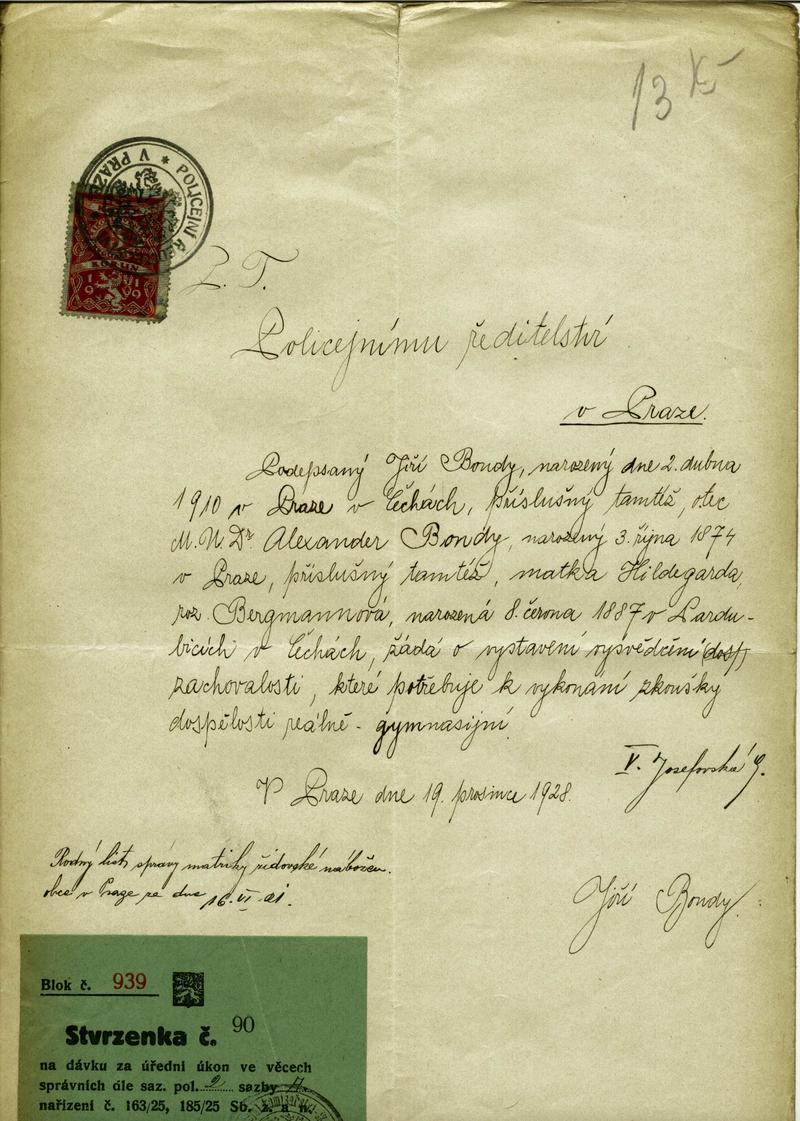 13 Kč
POLICEJNÍ ŘED
V PRAZE
KORUN
1919
P. T.
Policejnímu ředitelství
v Praze.
Podepsaný Jiří Bondy, narozený dne 2. dubna
1910 v Praze v Čechách, příslušný tamtéž, otec
M.U.Dr Alexander Bondy, narozený 3. října 1874
v Praze, příslušný tamtéž, matka Hildegarda,
roz. Bergmannová, narozená 8. června 1887 v Pardu-
bicích v Čechách, žádá o vystavení vysvědčení
zachovalosti, které potřebuje k vykonaní zkoušky
dospělosti reálně - gymnasijní
V. Josefovská 9.
V Praze dne 19. prosince 1928.
Rodný list správy matriky židovské nábožen.
obce v Praze ze dne 16. VI.
Jiří Bondy
Blok č. 939
Stvrzenka č. 90
na dávku za úřední úkon ve věcech
správních dle saz. pol. 2 sazby A.
nařízení č. 163/25, 185/25 Sb. z. a n.